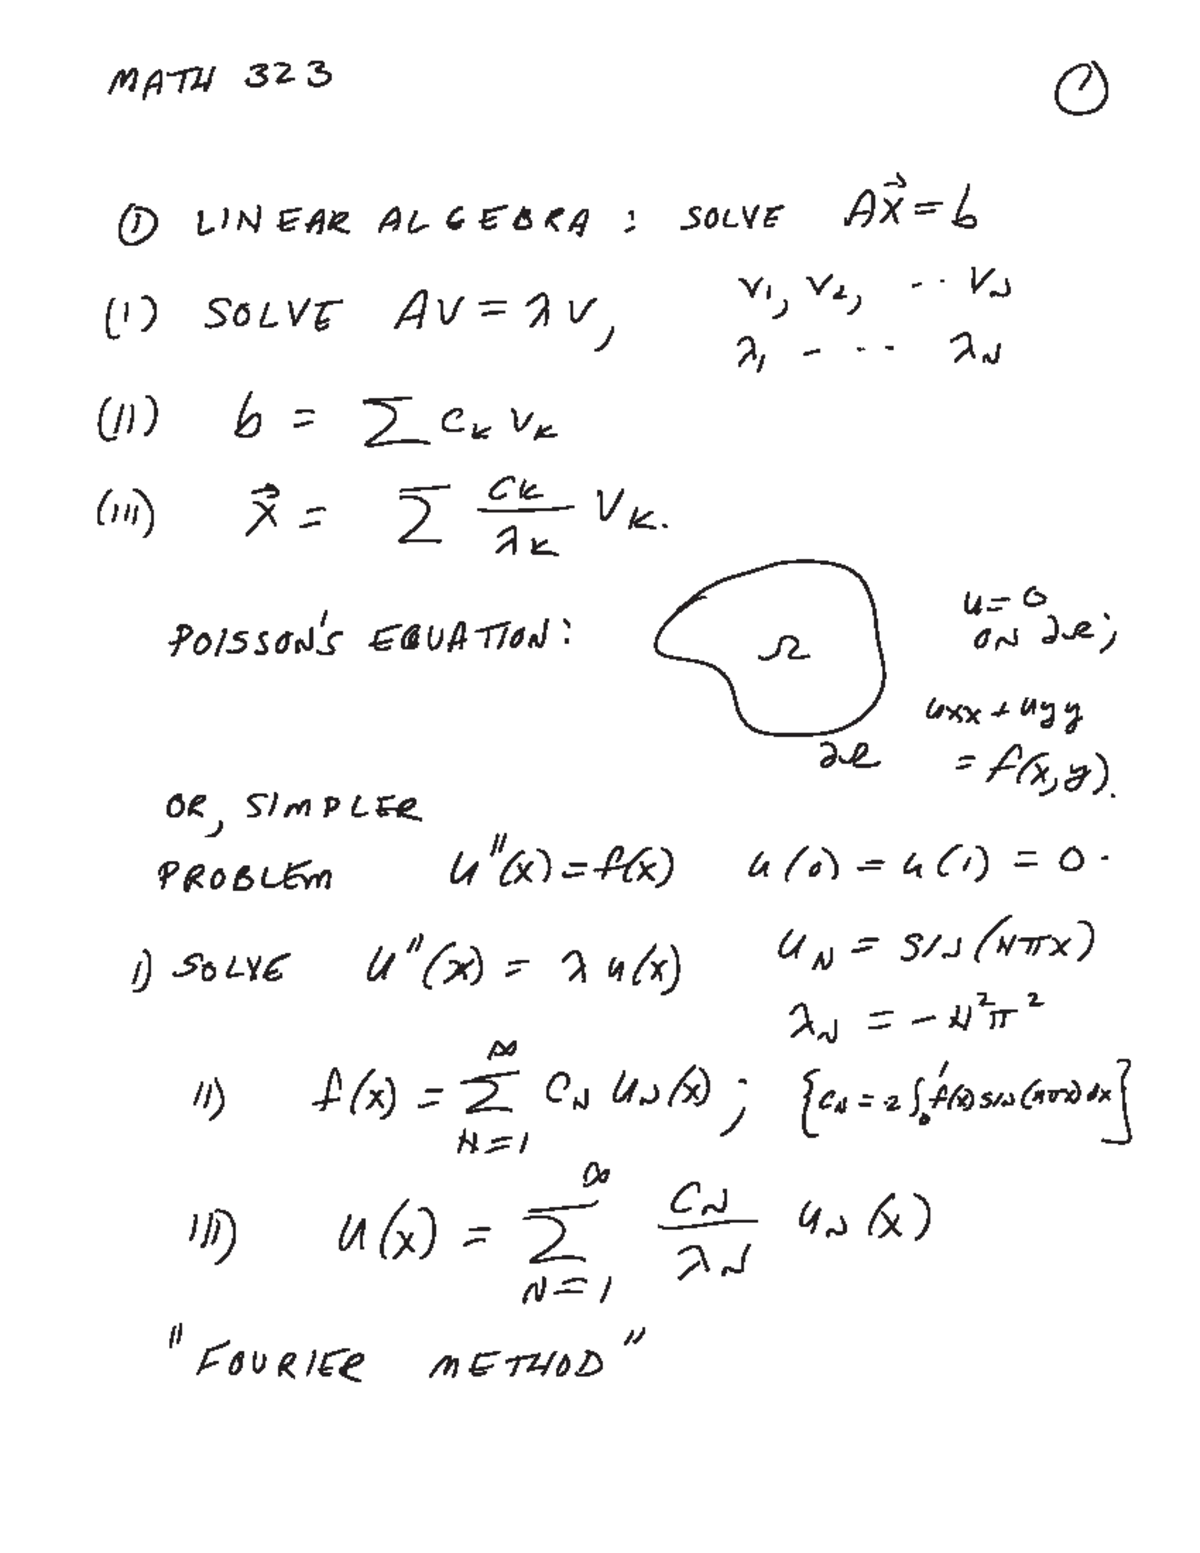 MATH 323
①
① LINEAR ALGEBRA : SOLVE Ax⃗ = b
(I) SOLVE Av = λv, v₁, v₂, ... v_N
λ₁ - ... λ_N
(II) b = Σ c_k v_k
(III) x⃗ = Σ c_k/λ_k v_k.
POISSON'S EQUATION:
Ω
∂Ω
u = 0
ON ∂Ω;
u_xx + u_yy
= f(x,y).
OR, SIMPLER
PROBLEM u''(x) = f(x) u(0) = u(1) = 0.
I) SOLVE u''(x) = λ u(x) u_N = SIN(Nπx)
λ_N = -N²π²
II) f(x) = Σ_{N=1}^∞ C_N u_N(x) ; [C_N = 2 ∫₀¹ f(x) SIN(Nπx) dx]
III) u(x) = Σ_{N=1}^∞ C_N/λ_N u_N(x)
"FOURIER METHOD"